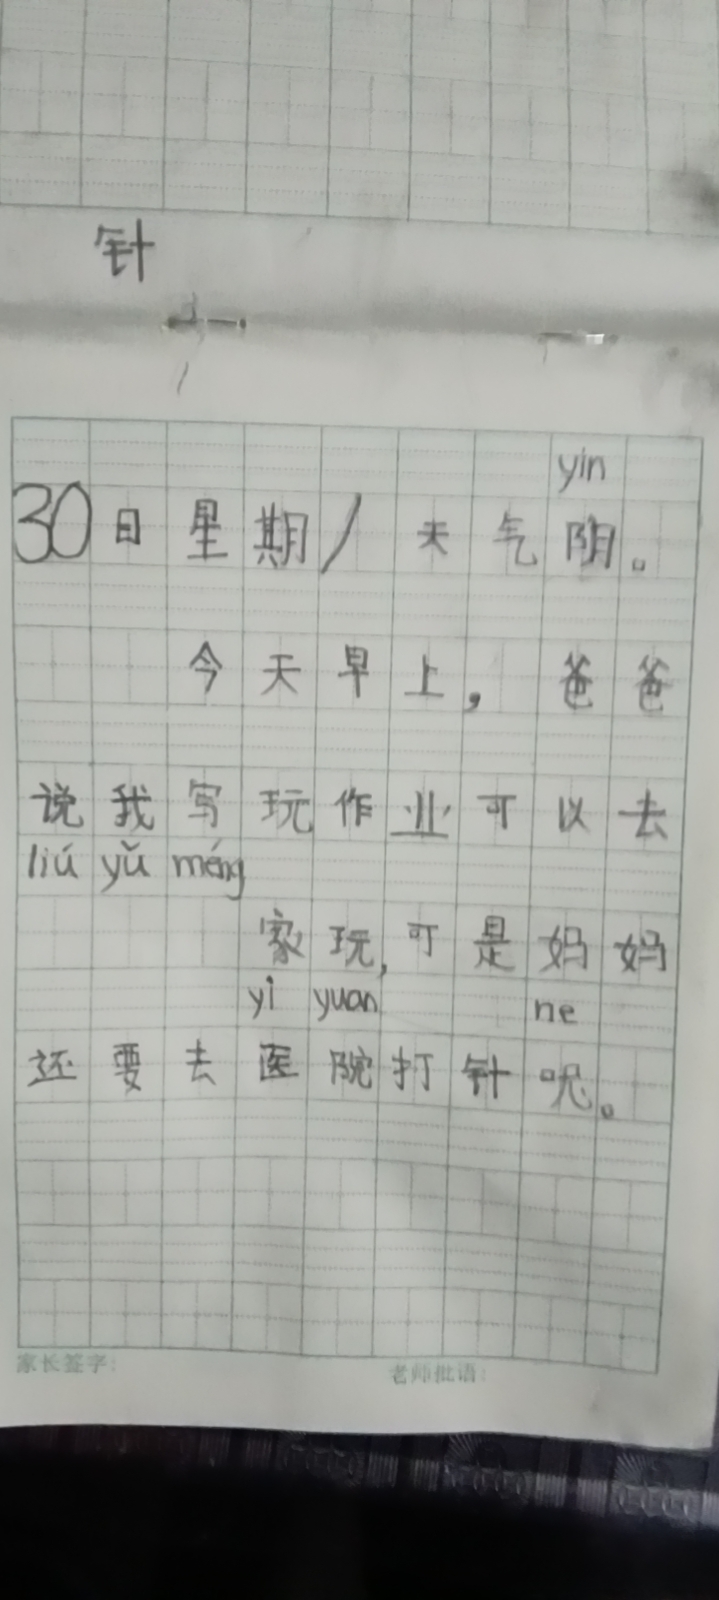 针
yin
30日星期/天气阴。
今天早上，爸爸
说我写玩作业可以去
liú yǔ méng
家玩,可是妈妈
yi yuan ne
还要去医院打针呢。
家长签字：
老师批语：